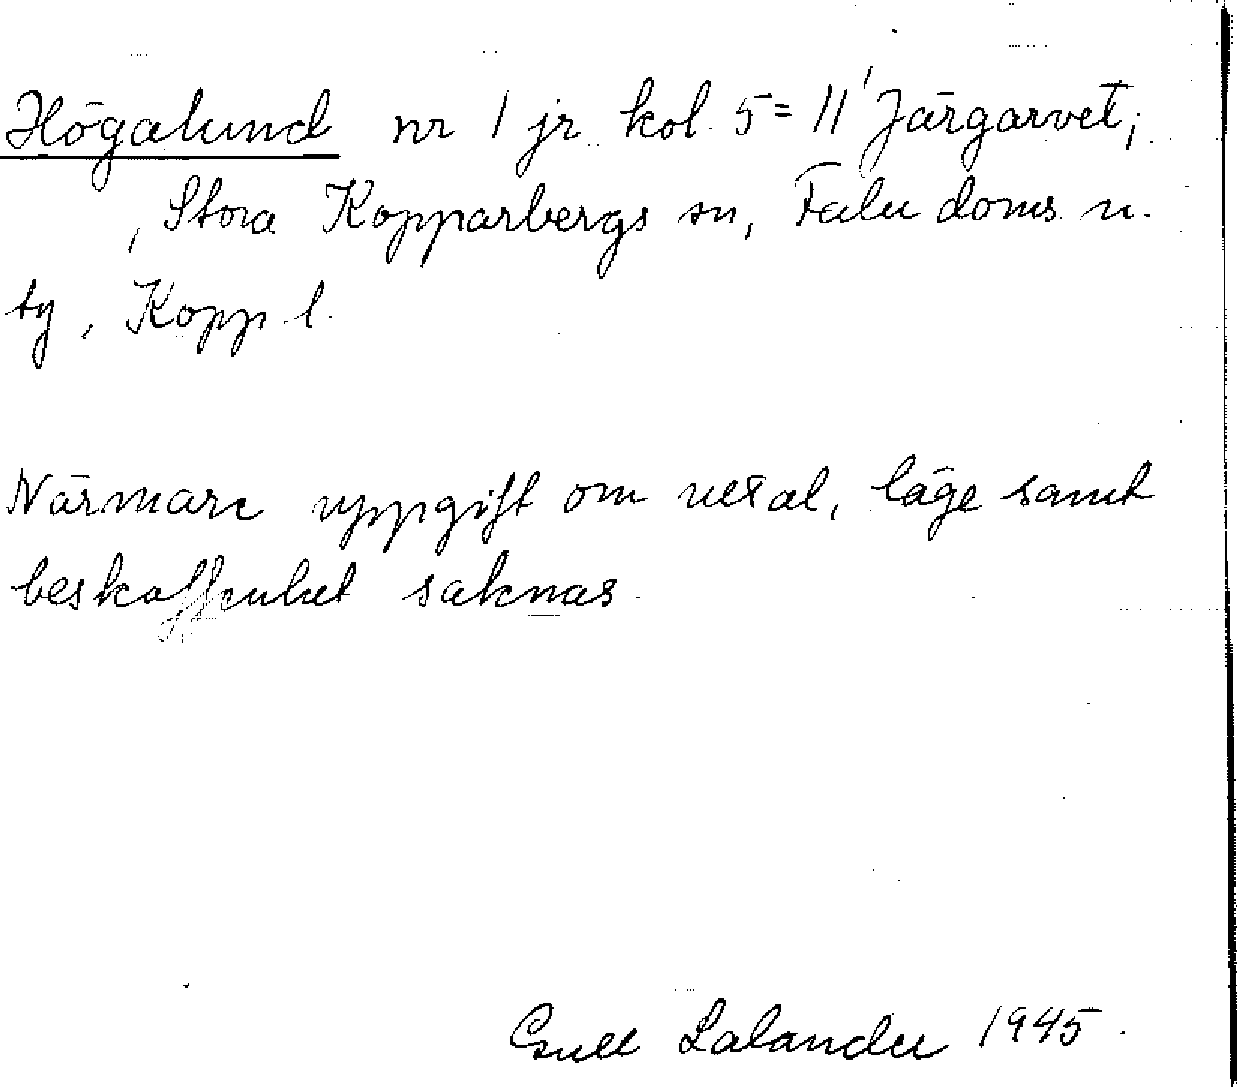 Högalund nr 1 jr kol. 5 = 11' Järgarvet;
, Stora Kopparbergs sn, Falu doms. n.
ty, Kopp. l.
Närmare uppgift om uttal, läge samt
beskaffenhet saknas.
Lalander 1945.